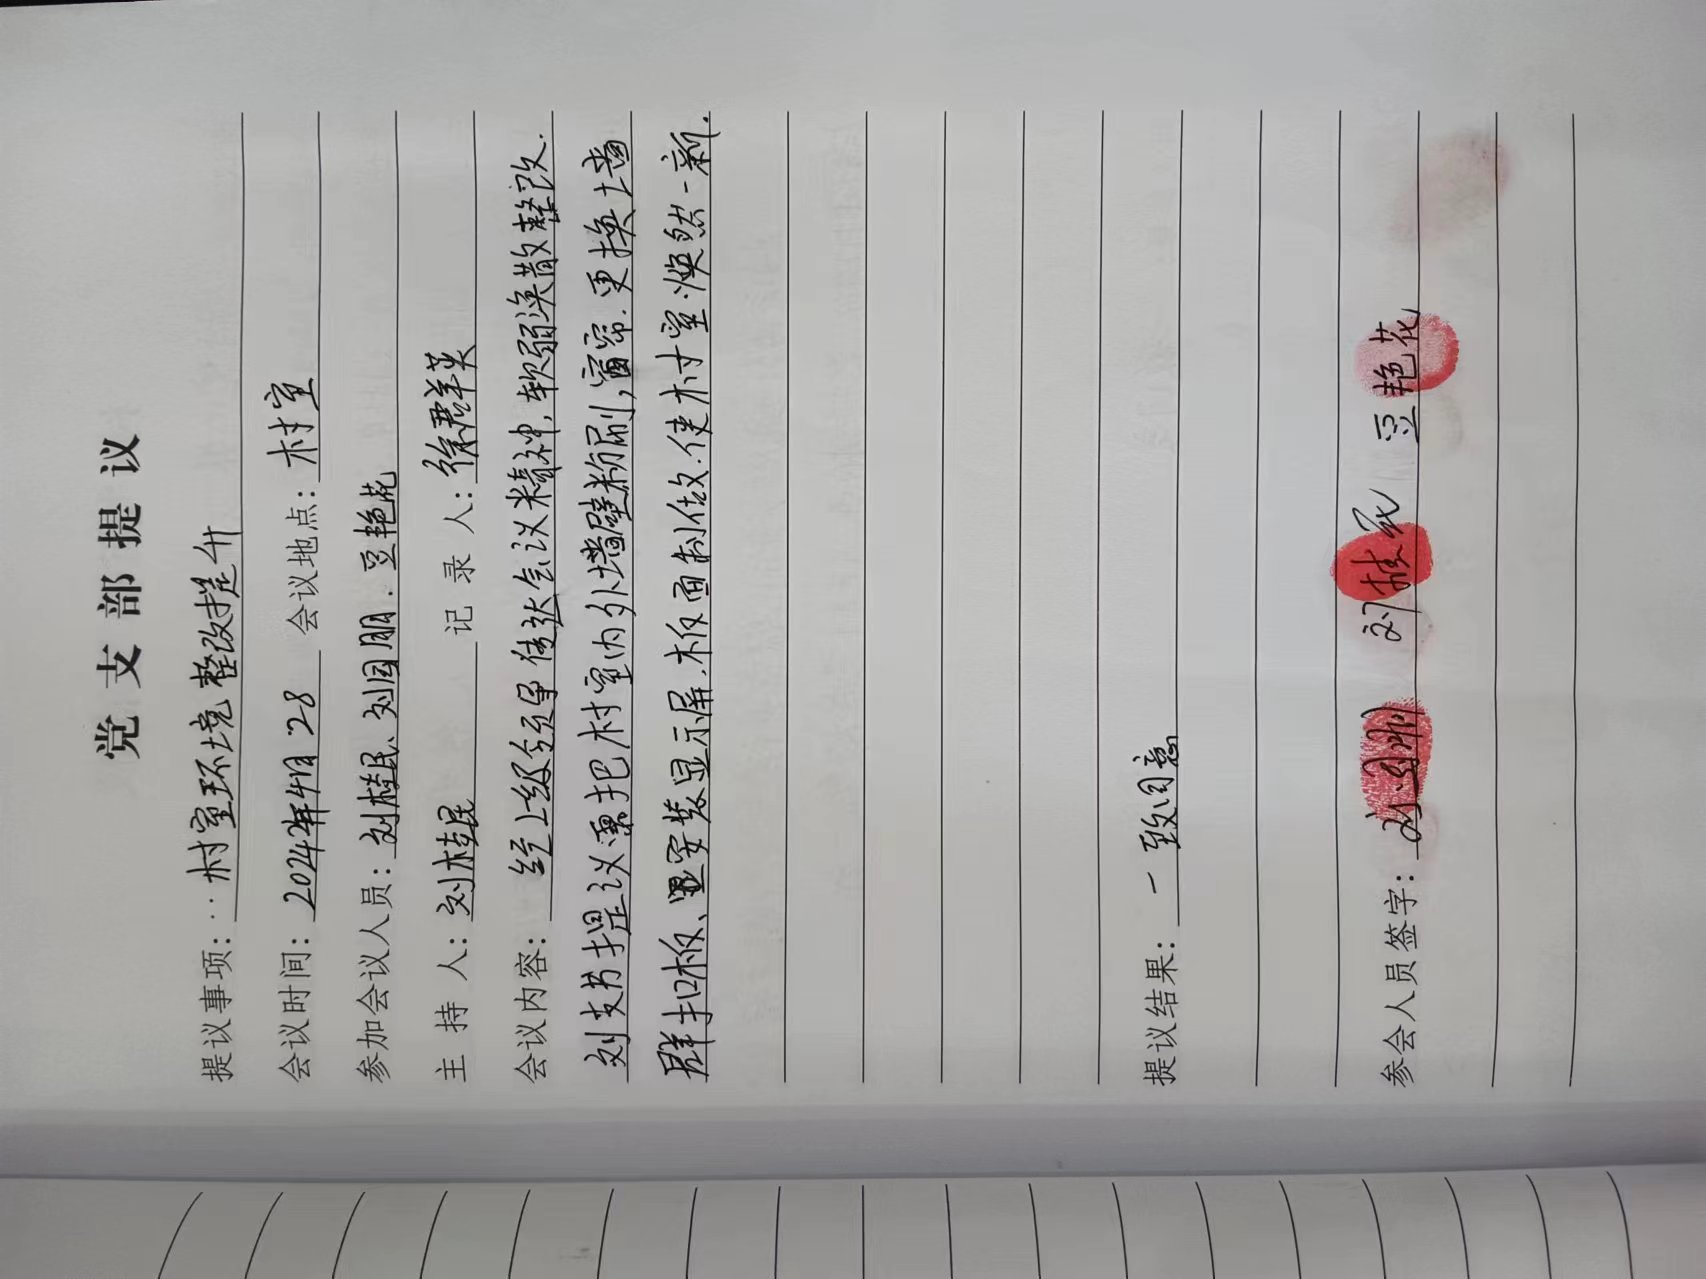 党支部提议
提议事项：村室环境整改提升
会议时间：2024年4月28 会议地点：村室
参加会议人员：刘桂民、刘国朋.豆艳花
主持人：刘桂民 记录人：徐群英
会议内容：经上级领导传达会议精神，软弱涣散整改.
刘支书提议要把村室内外墙壁粉刷，窗帘.更换墙
群扣板、安装显示屏.板面制做.使村室焕然一新.
提议结果：一致同意
参会人员签字：刘国朋 刘桂民 豆艳花